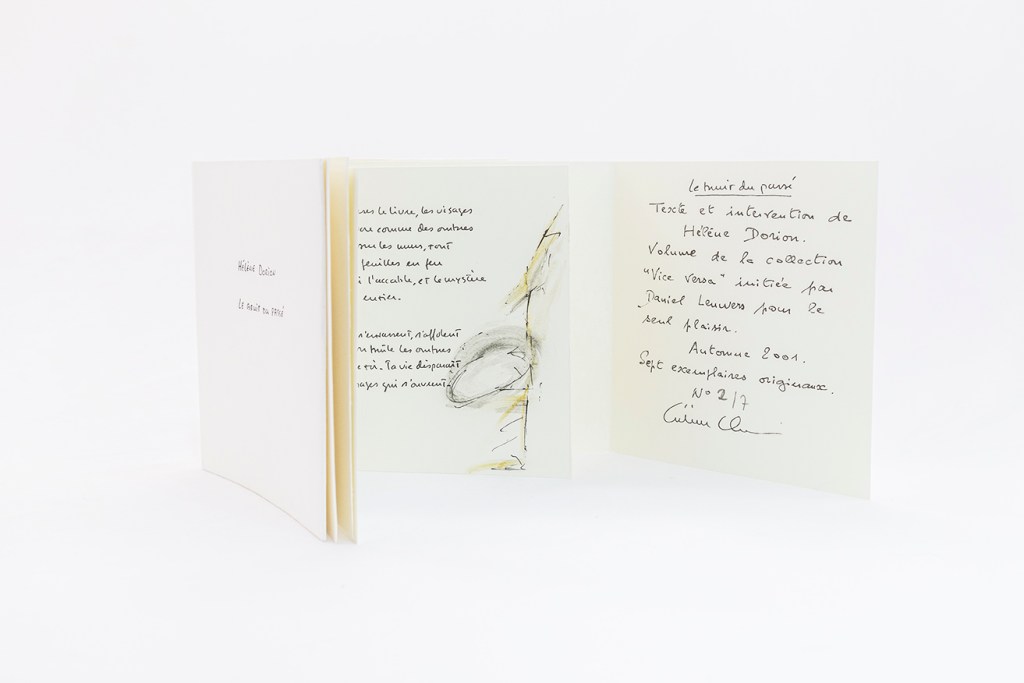 Hélène Dorion
Le bruit du passé
le livre, les visages
comme des ombres
sur les murs, tout
feuilles en feu
l'accable, et le mystère
entier.
s'affolent
brûle les ombres
toi. Ta vie disparaît
qui s'ouvrent.
Le bruit du passé
Texte et intervention de
Hélène Dorion.
Volume de la collection
"Vice Versa" initiée par
Daniel Leuwers pour le
seul plaisir.
Automne 2001.
Sept exemplaires originaux.
N° 2/7